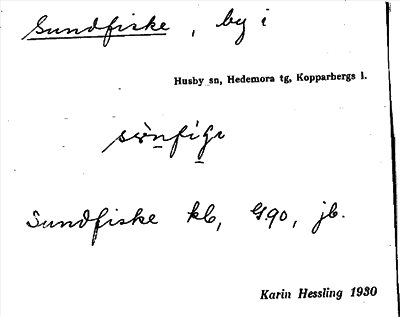 Sundfiske, by i
Husby sn, Hedemora tg, Kopparbergs l.
Sundfiske kb, G90, jb.
Karin Hessling 1930